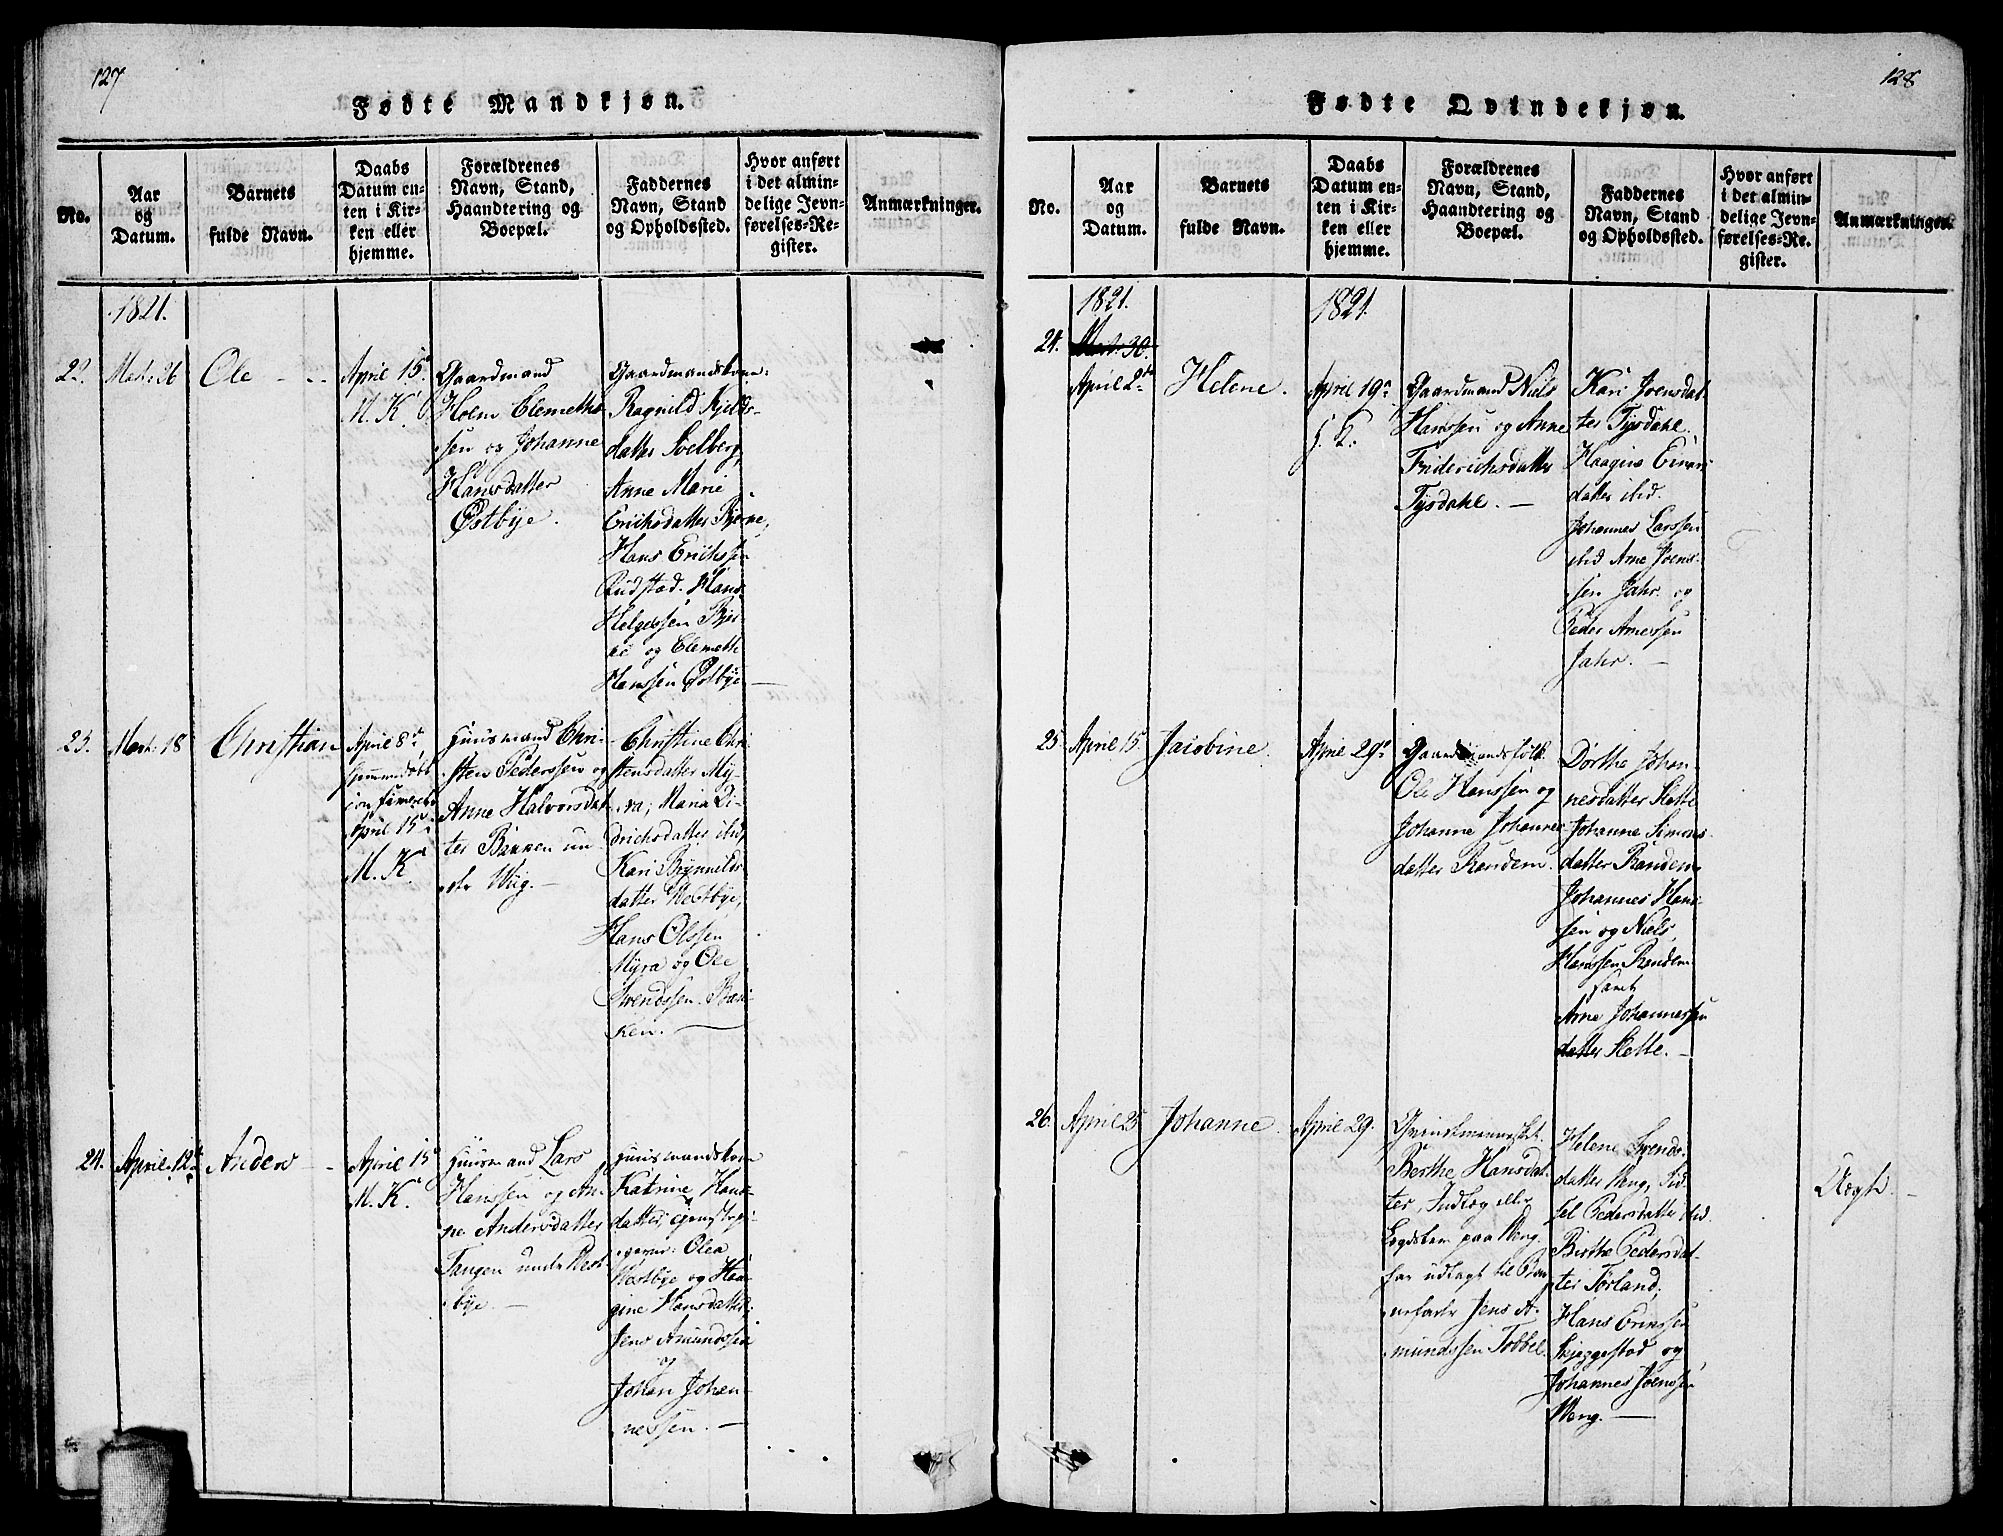 127
Fødte Mandkjøn.
No.
Aar
og
Datum.
Barnets
fulde Navn.
Daabs
Datum en-
ten i Kir-
ken eller
hjemme.
Forældrenes
Navn, Stand,
Haandtering og
Boepæl.
Faddernes
Navn, Stand
og Opholdssted.
Hvor anført
i det almin-
delige Jevn-
førelses-Re-
gister.
Anmærkninger.
1821.
Mart: 26
Ole
April 15.
M. K.
Gaardmand
Holm Clemeths-
sen og Johanne
Hansdatter
Østbye.
Gaardmandskone:
Ragnild Kjelds-
datter Solberg,
Anne Marie
Erichsdatter Bjerke,
Hans Erichssen
Rudstad. Hans
Helgessen Bjer-
ke og Clemeth
Hanssen Østbye.
23.
Mart: 18
Christian
April 8de
hjemmedøbt
April 15
M. K.
Huusmand Chri-
sten Pederssen og
Anne Halvorsdat-
ter Bakken un-
der Wiig.
Christine Chri-
stensdatter My-
ra, Maria Di-
drichsdatter ibid,
Kari Brynnilds-
datter Westbye,
Hans Olssen
Myra og Ole
Svendssen Bak-
ken.
24.
April 12te
Anders
April 15
M. K.
Huusmand Lars
Hanssen og An-
ne Andersdatter
Tangen under West-
bye.
Huusmandskone
Katrine Hans-
datter,
Olea
Westbye og Haa-
gine Hansdatter,
Jens Amundssen
og
Johan Johan-
nessen.
128
Fødte Qvindekjøn.
No.
Aar
og
Datum.
Barnets
fulde Navn.
Daabs
Datum en-
ten i Kir-
ken eller
hjemme.
Forældrenes
Navn, Stand,
Haandtering og
Boepæl.
Faddernes
Navn, Stand
og Opholdssted.
Hvor anført
i det almin-
delige Jevn-
førelses-Re-
gister.
Anmærkninger.
1821.
1821.
24.
Mart: 30.
April 2de
Helene.
April 19
Gaardmand Niels
Hanssen og Anne
Friderichsdatter
Tysdahl.
Kari Joensdat-
ter Tysdahl.
Haagine Einers-
datter ibid.
Johannes Larssen
ibid Arne Joens-
sen Jahr og
Peder Arnessen
Jahr.
25.
April 15.
Jacobine.
April 29
Gaardmandsfolk
Ole Hanssen og
Johanne Johannes-
datter Randem.
Dorthe Johan-
nesdatter Slette
Johanne Simons-
datter Randem
Johannes Hans-
sen og Niels
Hanssen Randem
samt
Arne Johannessen
datter Slette.
26.
April 25
Johanne.
April 29.
Qvindemennesket
Berthe Hansdat-
ter, Indlog eller
Legdslem paa Weng.
har udlagt til Bar-
nefader Jens A-
mundssen Tobbel.
Helene Svends-
datter Weng, Sid-
sel Pedersdatter ibid.
Birthe Pedersdat-
ter Torland,
Hans Erikssen
Skjeggestad og
Johannes Joenssen
Weng.
Uægte.